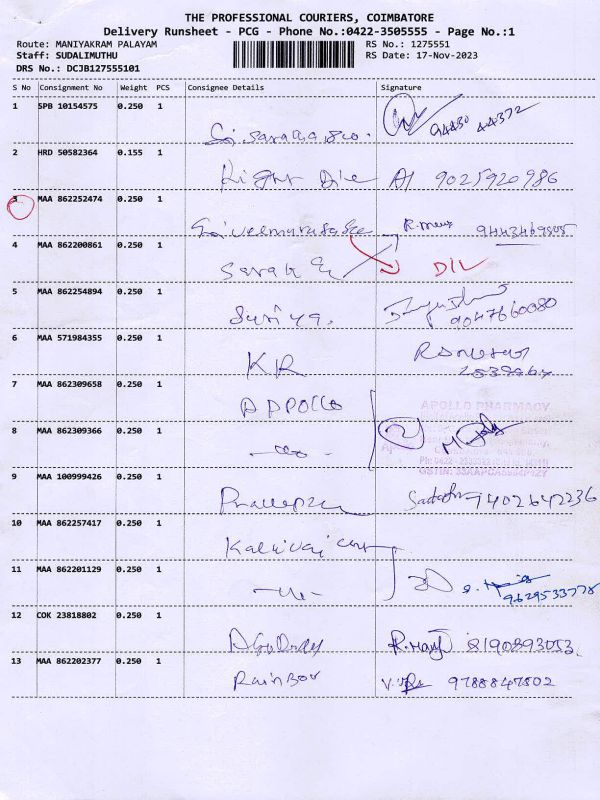 THE PROFESSIONAL COURIERS, COIMBATORE
Delivery Runsheet - PCG - Phone No.:0422-3505555 - Page No.:1
Route: MANIYAKRAM PALAYAM RS No.: 1275551
Staff: SUDALIMUTHU RS Date: 17-Nov-2023
DRS No.: DCJB127555101
S No Consignment No Weight PCS Consignee Details Signature
1 SPB 10154575 0.250 1
94430 44372
2 HRD 50582364 0.155 1
Right 9025920986
3 MAA 862252474 0.250 1
4 MAA 862200861 0.250 1
Sarah DIL
5 MAA 862254894 0.250 1
Suriya. 9047660080
6 MAA 571984355 0.250 1
KR
7 MAA 862309658 0.250 1
APPOLLO
APOLLO PHARMACY
8 MAA 862309366 0.250 1
-do-
9 MAA 100999426 0.250 1
9402642236
10 MAA 862257417 0.250 1
11 MAA 862201129 0.250 1
9629533778
12 COK 23818802 0.250 1
8190893053
13 MAA 862202377 0.250 1
Rainbow 9788847502